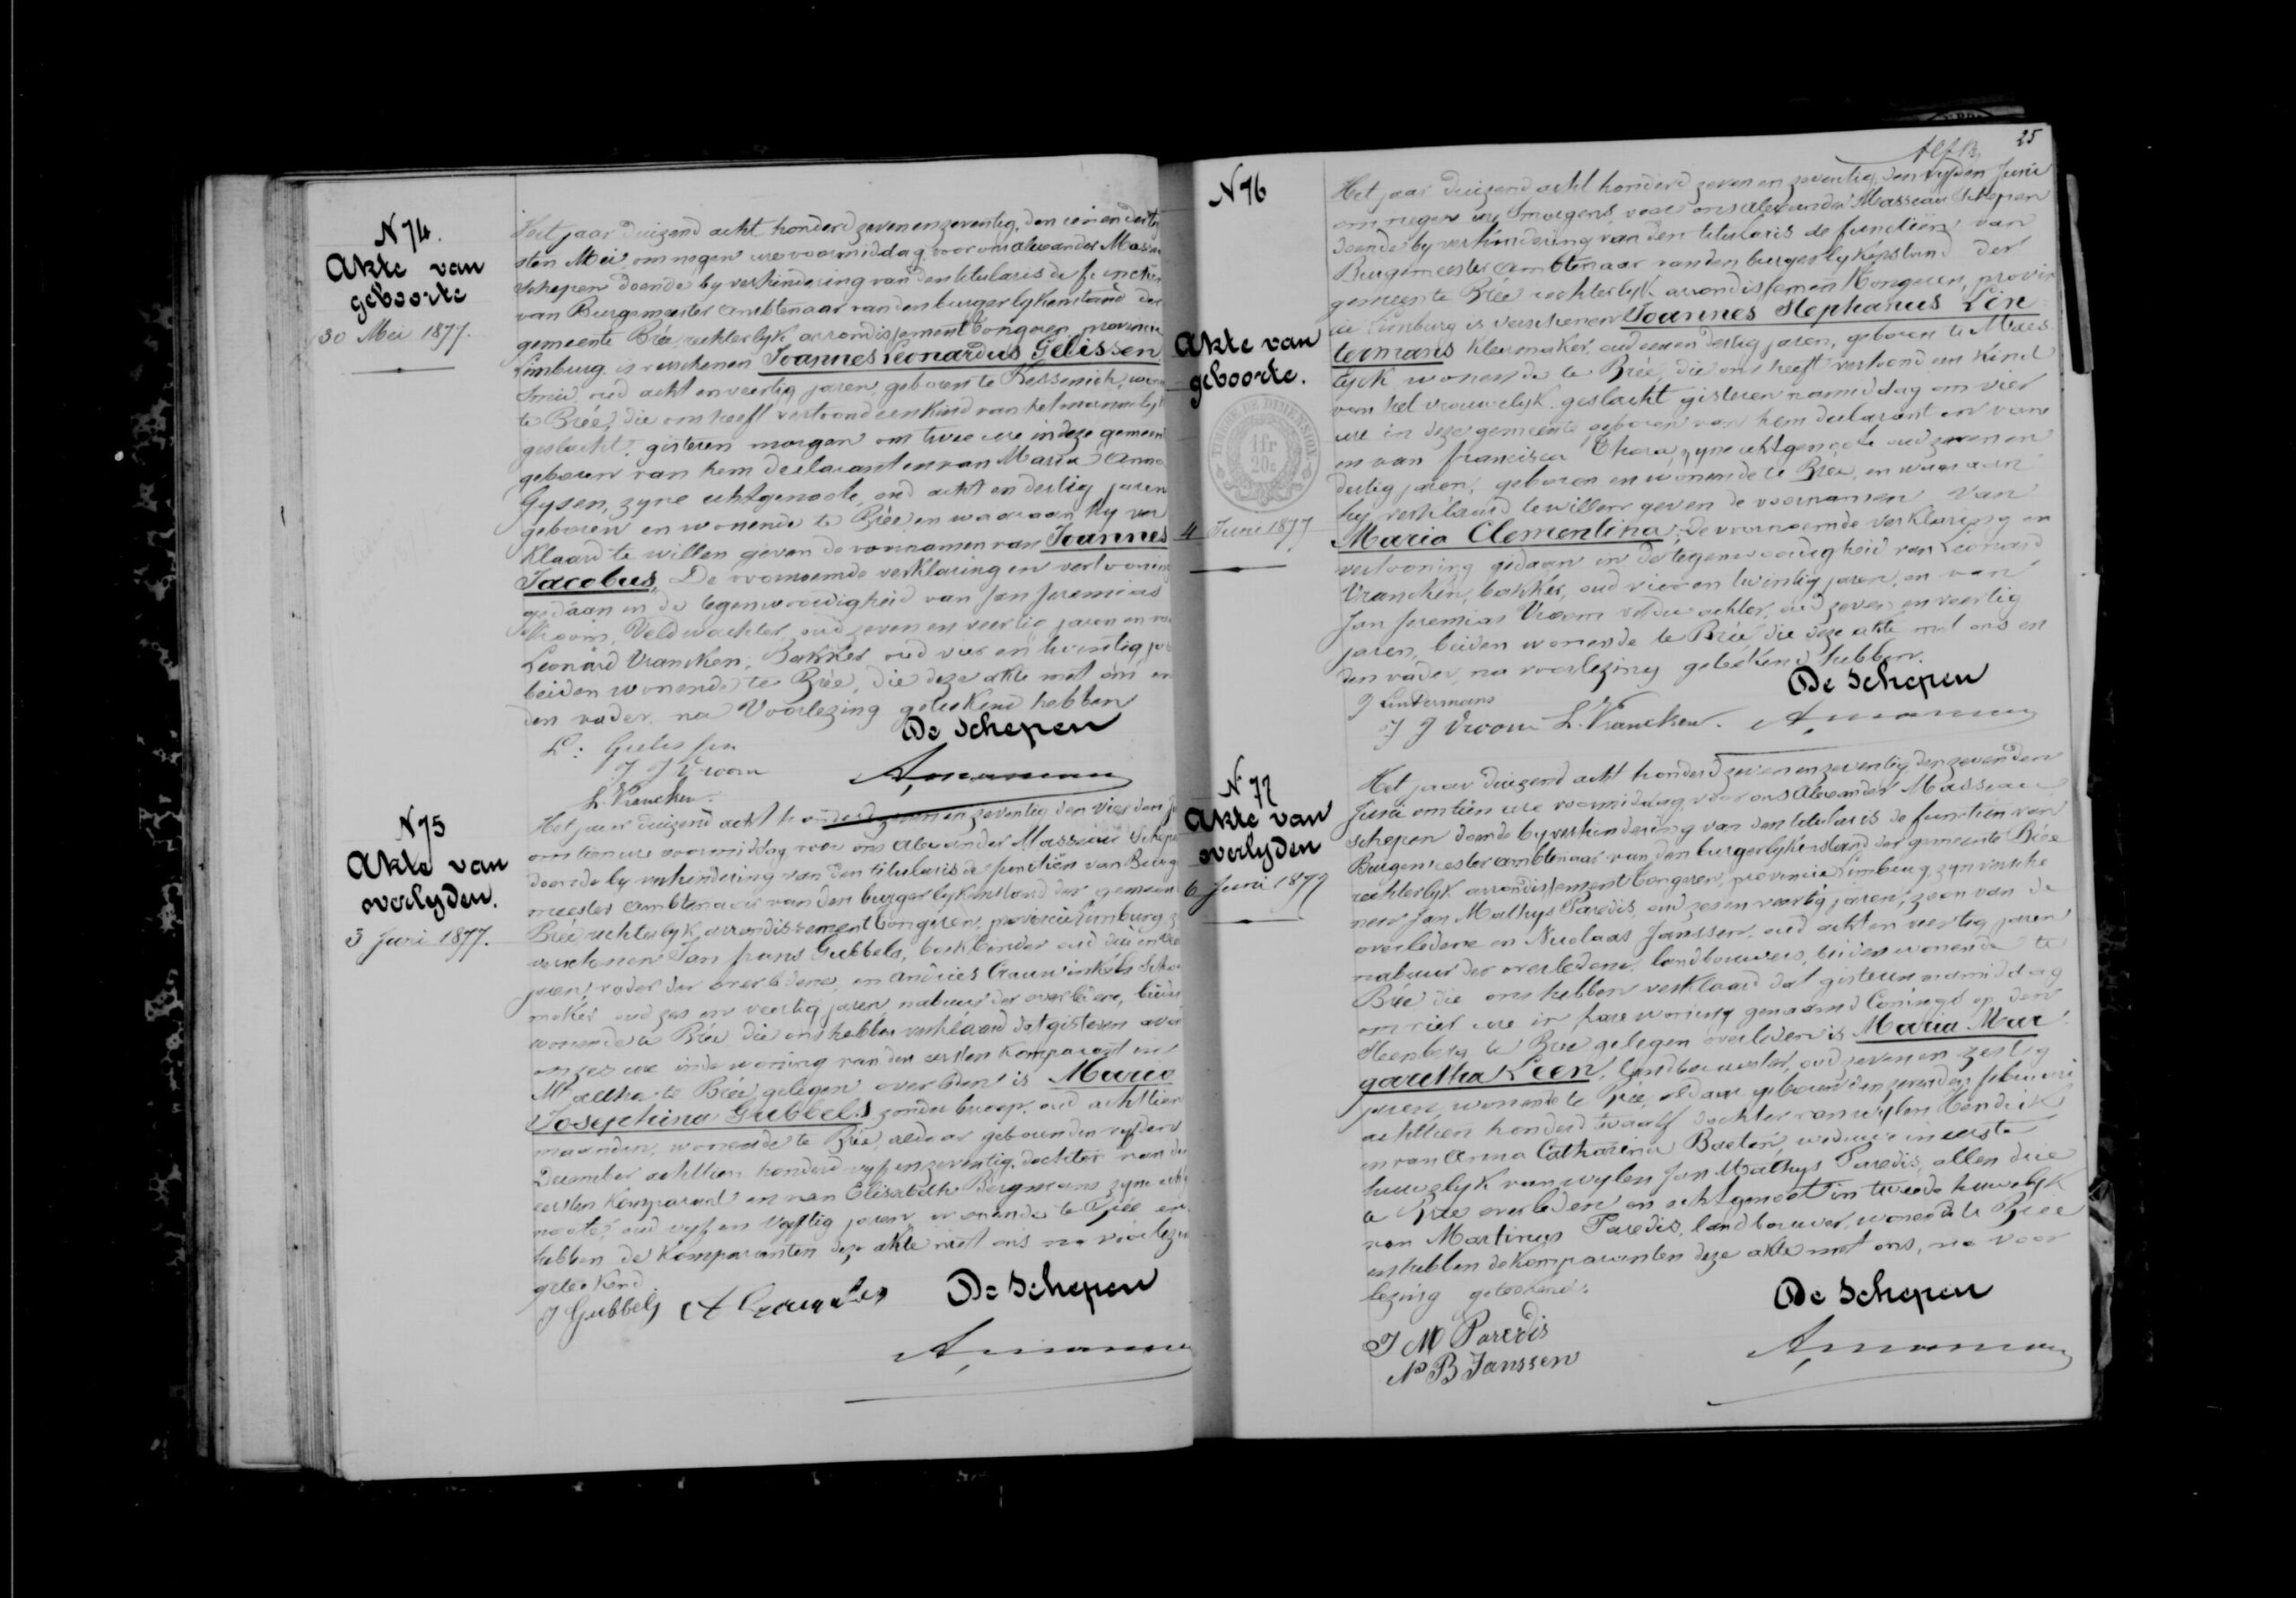 N 74.
Akte van
geboorte
30 Mei 1877.
Het jaar duizend acht honderd zeven en zeventig, den een en dertig
sten Mei, om negen ure voormiddag, voor ons Alexander Massau
schepen doende by verhindering van den titularis de functien
van Burgemeester ambtenaar van den burgerlyken stand der
gemeente Brée, rechterlyk arrondissement Tongeren, provincie
Limburg is verschenen Joannes Leonardus Gelissen
smid, oud acht en veertig jaren, geboren te Kessenich, wo
te Brée, die ons heeft vertoond een kind van het mannelyk
geslacht, gisteren morgen om twee ure in deze gemeen
geboren van hem declarant en van Maria Anna
Gysen, zyne echtgenoote, oud acht en dertig jaren
geboren en wonende te Brée en waaraan hy ver
klaard te willen geven de voornamen van Joannes
Jacobus. De voornoemde verklaring en vertooning
gedaan in de tegenwoordigheid van Jan Jeremias
Vroom, Veldwachter, oud zeven en veertig jaren en
Leonard Vrancken, Bakker oud vier en twintig ja
beiden wonende te Brée, die deze akte met ons en
den vader, na Voorlezing geteekend hebben
De Schepen
L: Gelissen
J J Vroom
L. Vrancken.
N 75
Akte van
overlyden.
3 Juni 1877.
Het jaar duizend acht honderd zeven en zeventig den vierden
om tien ure voormiddag, voor ons Alexander Massau Schepe
doende by verhindering van den titularis de functiën van Burge
meester ambtenaar van den burgerlyken stand der gemeen
Brée rechterlyk arrondissement Tongeren, provincie Limburg z
verschenen Jan frans Gubbels, boekbinder oud drie en
jaren, vader der overledene, en Andries Crauwinkels Schoe
maker oud zes en veertig jaren, nabuur der overledene, beide
wonende te Brée die ons hebben verklaard dat gisteren avo
om zes ure in de woning van den eersten komparant in
te Brée gelegen overleden is Maria
Josephina Gubbels zonder beroep, oud achttien
maanden, wonende te Brée, aldaar geboren den vyfden
December achttien honderd vyf en zeventig, dochter van de
eersten komparant en van Elisabeth Bergmans zyne echtge
noote, oud vyf en jaren, wonende te Brée en
hebben de komparanten deze akte met ons na voorlezin
geteekend
J Gubbels
De Schepen
25
N 76
Akte van
geboorte.
TIMBRE DE DIMENSION
1 fr
20 c
4 Juni 1877
Het jaar duizend acht honderd zeven en zeventig, den vyfden Juni
om negen ure smorgens, voor ons Alexander Massau Schepen
doende by verhindering van den titularis de functiën van
Burgemeester ambtenaar van den burgerlyken stand der
gemeente Brée rechterlyk arrondissement Tongeren, provin
cie Limburg is verschenen Joannes Stephanus Lin
termans kleermaker, oud een en dertig jaren, geboren te Maes
eyck, wonende te Brée, die ons heeft vertoond een kind
van het vrouwelyk geslacht gisteren namiddag om vier
ure in deze gemeente geboren van hem declarant en van
en van francisca zyne echtgenoote oud zeven en
dertig jaren, geboren en wonende te Brée, en waaraan
hy verklaard te willen geven de voornamen van
Maria Clementina. De voornoemde verklaring en
vertooning gedaan in de tegenwoordigheid van Leonard
Vrancken, bakker, oud vier en twintig jaren, en van
Jan Jeremias Vroom veldwachter, oud zeven en veertig
jaren, beiden wonende te Brée die deze akte met ons en
den vader, na voorlezing geteekend hebben.
De Schepen
J Lintermans
J J Vroom L. Vrancken.
N 77
Akte van
overlyden
6 Juni 1877
Het jaar duizend acht honderd zeven en zeventig, den zevenden
Juni om tien ure voormiddag voor ons Alexander Massau
schepen doende by verhindering van den titularis de functien van
Burgemeester ambtenaar van den burgerlyken stand der gemeente Brée
rechterlyk arrondissement Tongeren, provincie Limburg, zyn versche
nen Jan Mathys Paredis, oud zes en veertig jaren, zoon van de
overledene en Nicolaas Janssen, oud acht en veertig jaren
nabuur der overledene, landbouwers, beiden wonende te
Brée die ons hebben verklaard dat gisteren namiddag
om vier ure in hare woning genaamd Conings op den
Steenberg te Brée gelegen overleden is Maria Mar
garetha Leen, landbouwster, oud zeven en zestig
jaren, wonende te Brée, aldaar geboren den zevenden februari
achttien honderd twaalf dochter van wylen Hendrik
en van Anna Catharina Baeten, weduwe in eerste
huwelyk van wylen Jan Mathys Paredis, allen drie
te Brée overleden en echtgenoot in tweede huwelyk
van Martinus Paredis, landbouwer, wonende te Brée
en hebben de komparanten deze akte met ons, na voor
lezing geteekend.
De Schepen
J M Paredis
N B Janssen